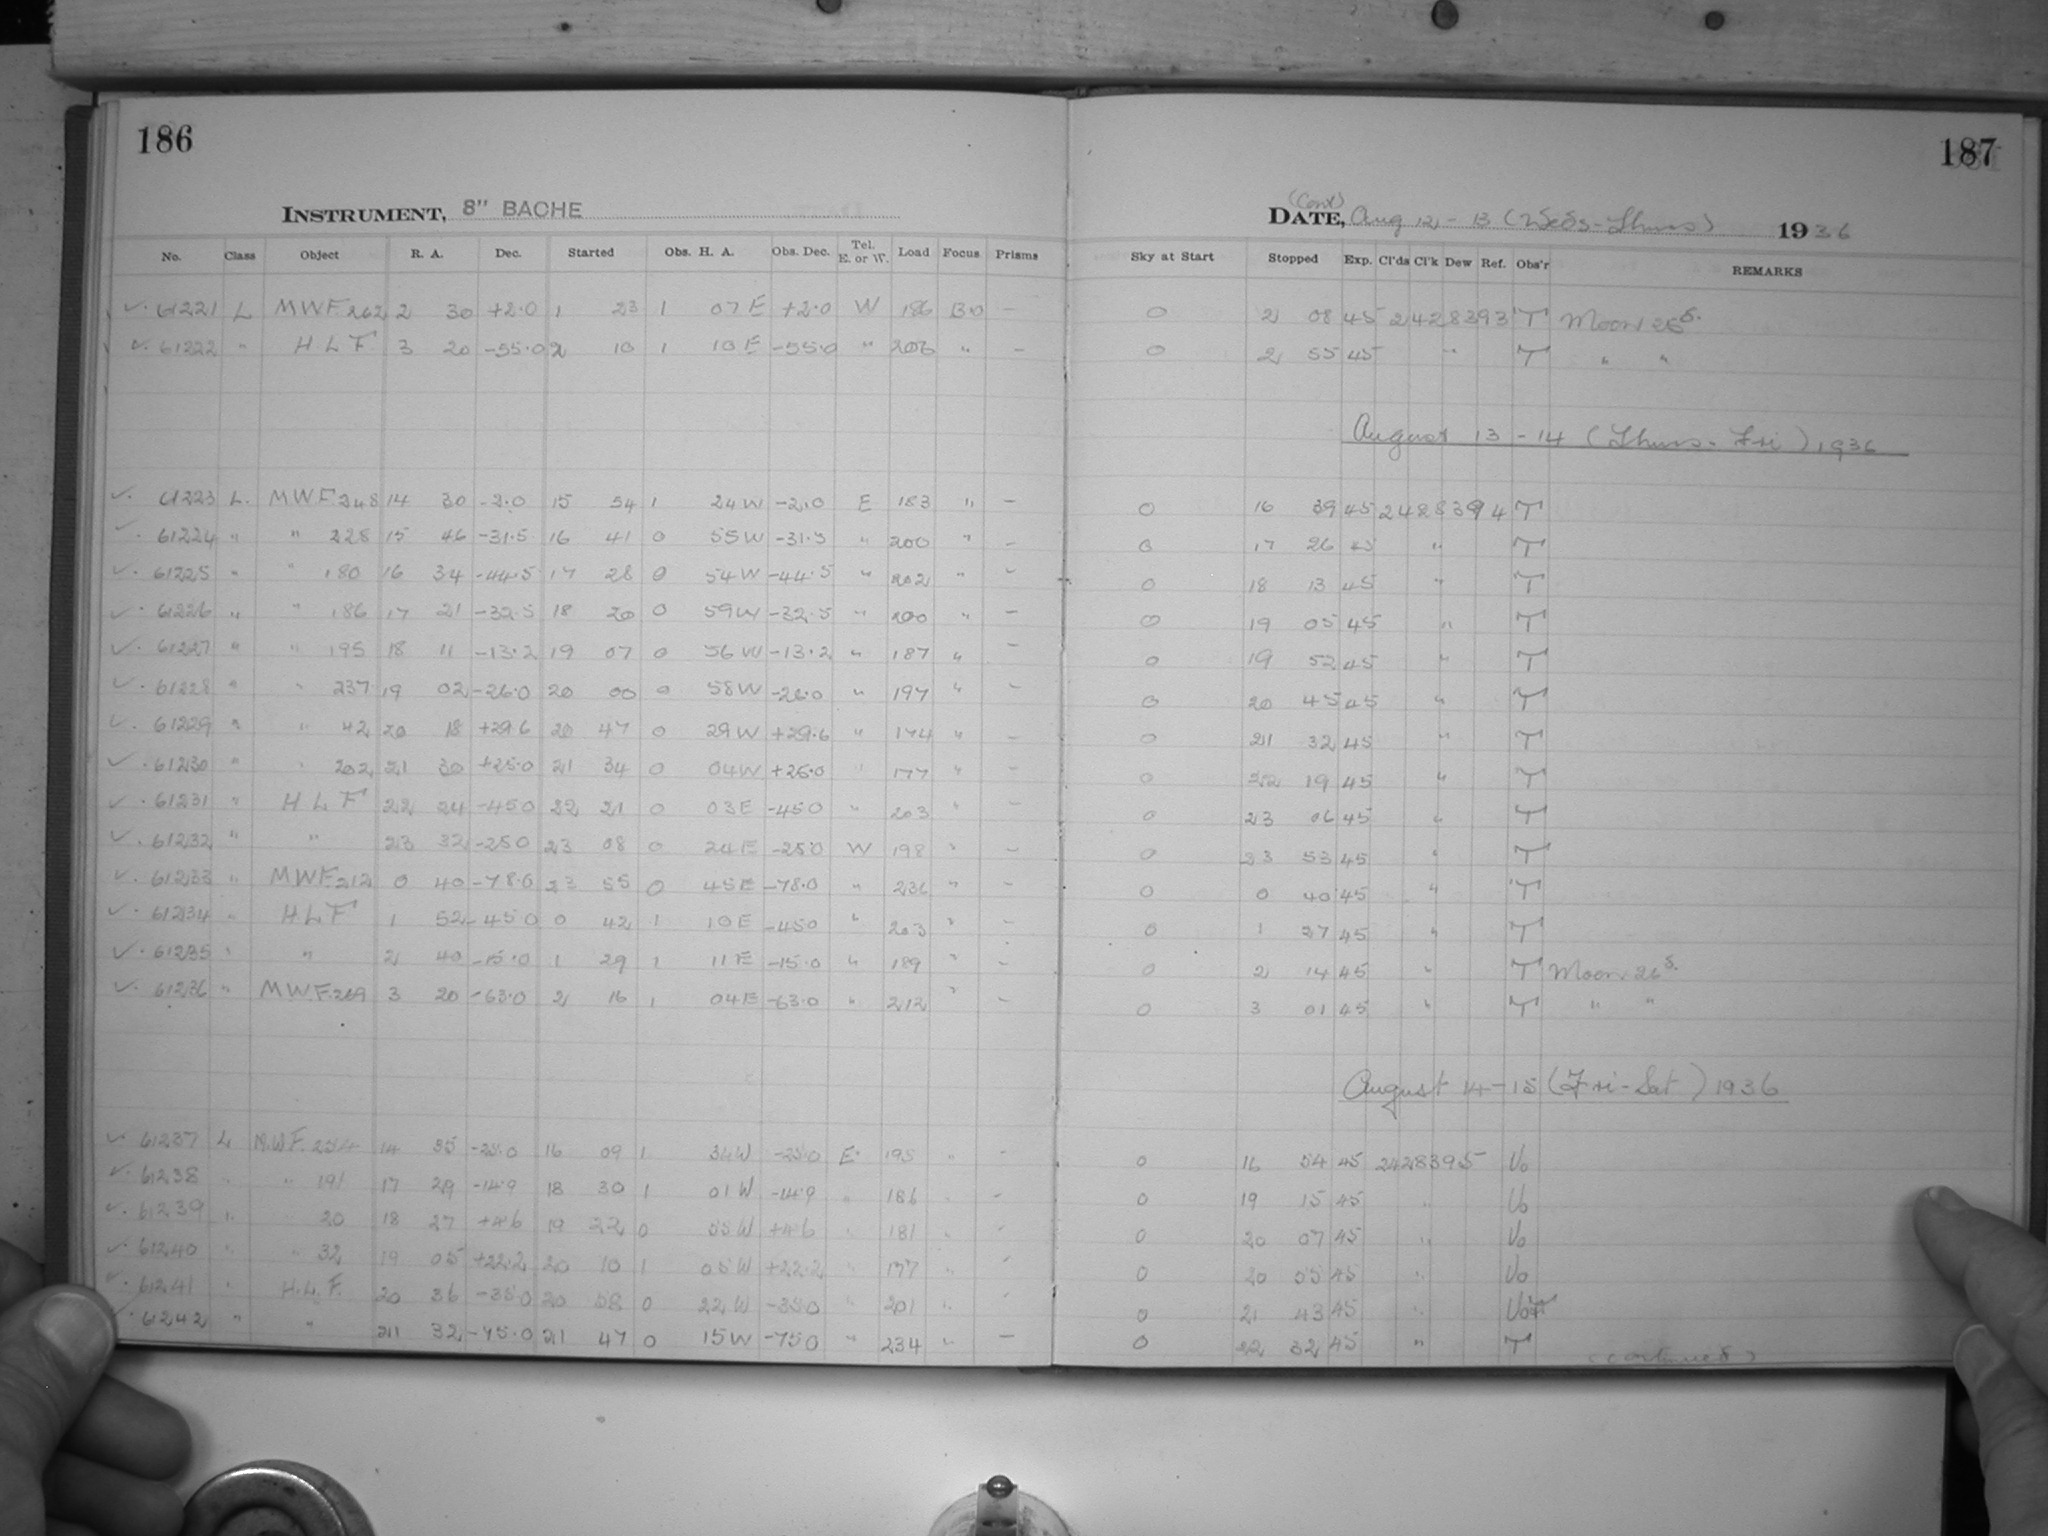 186
187
INSTRUMENT, 8" BACHE
(Cont)
DATE, Aug 12 - 13 (Weds-Thurs) 1936
No. Class Object R. A. Dec. Started Obs. H. A. Obs. Dec. Tel. E. or W. Load Focus Prisms Sky at Start Stopped Exp. Cl'ds Cl'k Dew Ref. Obs'r REMARKS
✓. 61221 L MWF 262 2 30 +2.0 1 23 1 07 E +2.0 W 186 - 0 2 08 45 2428393 T Moon 25 d.
✓. 61222 " H L F 3 20 -55.0 2 10 1 10 E -55.0 " 206 " - 0 2 55 45 " T " "
August 13 - 14 (Thurs - Fri) 1936
✓. 61223 L. MWF 248 14 30 -2.0 15 54 1 24 W -2.0 E 183 " - 0 16 39 45 2428394 T
✓. 61224 " " 228 15 46 -31.5 16 41 0 55 W -31.5 " 200 " - 0 17 26 45 " T
✓. 61225 " " 180 16 34 -44.5 17 28 0 54 W -44.5 " 202 " - 0 18 13 45 " T
✓. 61226 " " 186 17 21 -32.5 18 20 0 59 W -32.5 " 200 " - 0 19 05 45 " T
✓. 61227 " " 195 18 11 -13.2 19 07 0 56 W -13.2 " 187 " - 0 19 52 45 " T
✓. 61228 " " 237 19 02 -26.0 20 00 0 58 W -26.0 " 197 " - 0 20 45 45 " T
✓. 61229 " " 42 20 18 +29.6 20 47 0 29 W +29.6 " 174 " - 0 21 32 45 " T
✓. 61230 " " 202 21 30 +25.0 21 34 0 04 W +25.0 " 177 " - 0 22 19 45 " T
✓. 61231 " H L F 22 24 -45.0 22 21 0 03 E -45.0 " 203 " - 0 23 06 45 " T
✓. 61232 " " 23 32 -25.0 23 08 0 24 E -25.0 W 198 " - 0 23 53 45 " T
✓. 61233 " MWF 212 0 40 -78.0 23 55 0 45 E -78.0 " 236 " - 0 0 40 45 " T
✓. 61234 " H L F 1 52 -45.0 0 42 1 10 E -45.0 " 203 " - 0 1 27 45 " T
✓. 61235 " " 2 40 -15.0 1 29 1 11 E -15.0 " 189 " - 0 2 14 45 " T Moon 26 d.
✓. 61236 " MWF 269 3 20 -63.0 2 16 1 04 E -63.0 " 212 " - 0 3 01 45 " T " "
August 14-15 (Fri-Sat) 1936
✓. 61237 L M.W.F. 14 35 -25.0 16 09 1 34 W -25.0 E 195 " - 0 16 54 45 2428395 Vo
✓. 61238 " " 191 17 29 -14.9 18 30 1 01 W -14.9 " 186 " - 0 19 15 45 " Vo
✓. 61239 " " 20 18 27 +4.6 19 22 0 55 W +4.6 " 181 " - 0 20 07 45 " Vo
✓. 61240 " " 32 19 05 +22.2 20 10 1 05 W +22.2 " 177 " - 0 20 55 45 " Vo
✓. 61241 " H.L.F. 20 36 -35.0 20 58 0 22 W -35.0 " 201 " - 0 21 43 45 " Vo T
✓. 61242 " " 21 32 -75.0 21 47 0 15 W -75.0 " 234 " - 0 22 32 45 " T
(continued)